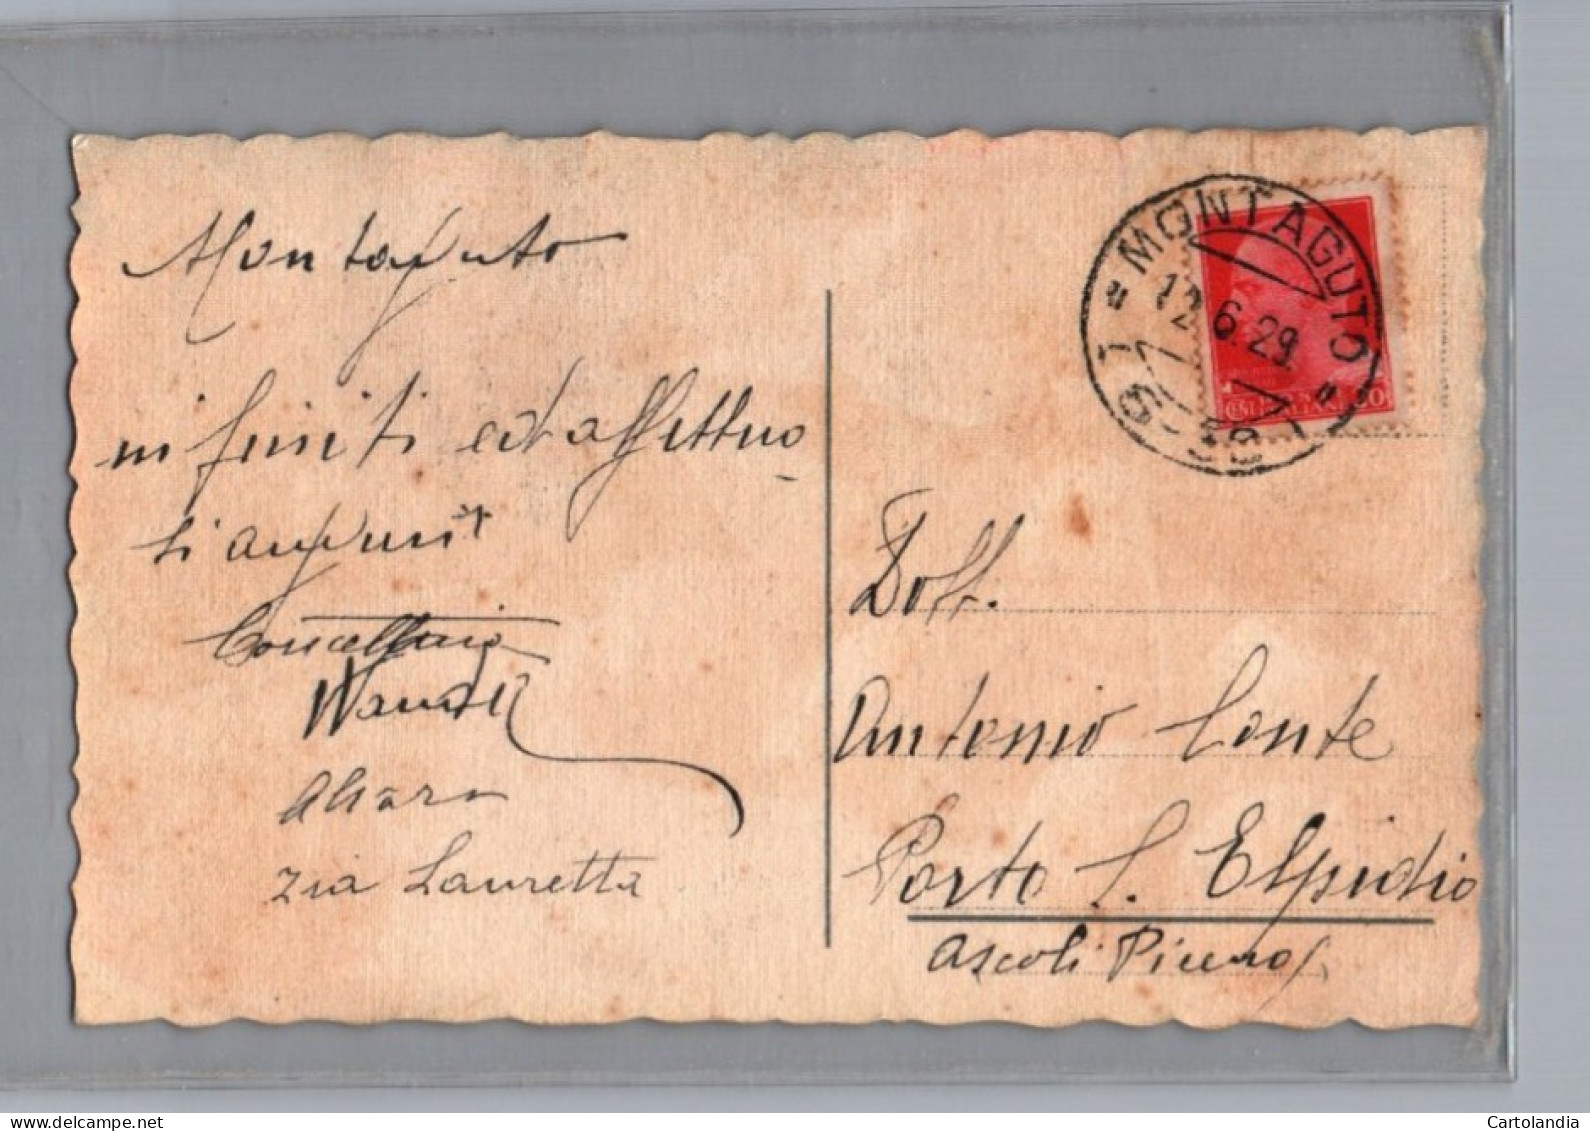 Montaguto
infiniti ed affettuo-
si auguri
Wanda
zia Lauretta
"MONTAGUTO"
12.6.29
Dott.
Antonio Conte
Porto S. Elpidio
Ascoli Piceno
www.delcampe.net
Cartolandia